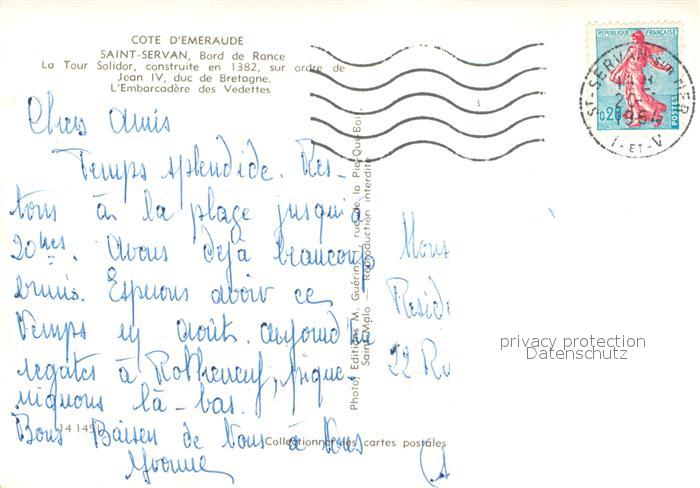 COTE D'EMERAUDE
SAINT-SERVAN, Bord de Rance
La Tour Solidor, construite en 1382, sur ordre de
Jean IV, duc de Bretagne.
L'Embarcadère des Vedettes
REPUBLIQUE FRANÇAISE
0,20
POSTES
ST-SERVAN-SUR-MER
I-ET-V
Chers Amis
Temps splendide. Res-
tons à la plage jusqu'à
20hes. Avons déjà beaucoup
brunis. Espérons avoir ce
temps en août. aujourd'hui
regates à Rotheneuf, pique-
niquons là-bas.
Bons Baisers de Nous à Vous
Yvonne
Photo, Editions M. Guérin, rue de la Pie-Qui-Boit,
Saint-Malo — Reproduction interdite
Mons
Reside
22 Ru
privacy protection
Datenschutz
14 149
Collectionnez les cartes postales